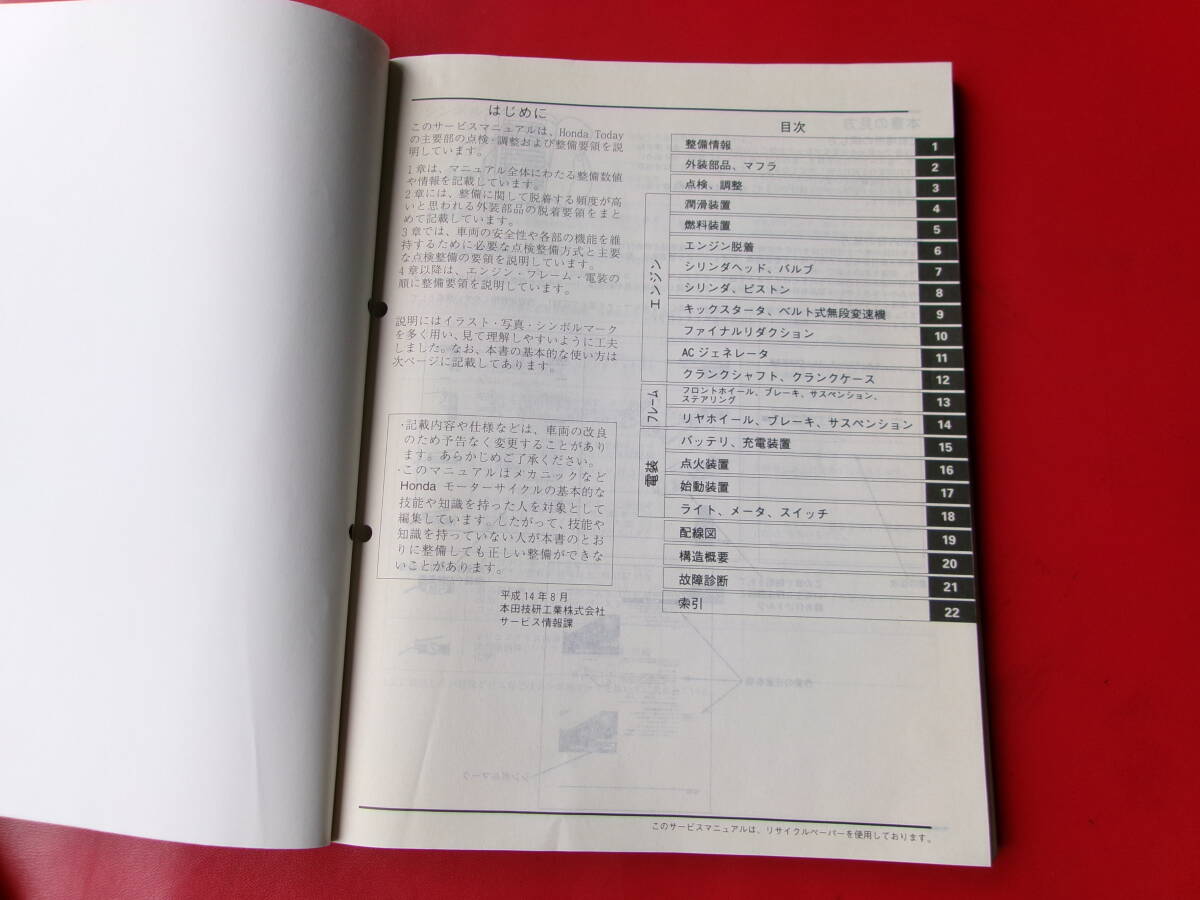 はじめに
このサービスマニュアルは、Honda Today
の主要部の点検・調整および整備要領を説
明しています。
1章は、マニュアル全体にわたる整備数値
や情報を記載しています。
2章には、整備に関して脱着する頻度が高
いと思われる外装部品の脱着要領をまと
めて記載しています。
3章では、車両の安全性や各部の機能を維
持するために必要な点検整備方式と主要
な点検整備の要領を説明しています。
4章以降は、エンジン・フレーム・電装の
順に整備要領を説明しています。
説明にはイラスト・写真・シンボルマーク
を多く用い、見て理解しやすいように工夫
しました。なお、本書の基本的な使い方は
次ページに記載してあります。
・記載内容や仕様などは、車両の改良
のため予告なく変更することがあり
ます。あらかじめご了承ください。
・このマニュアルはメカニックなど
Honda モーターサイクルの基本的な
技能や知識を持った人を対象として
編集しています。したがって、技能や
知識を持っていない人が本書のとお
りに整備しても正しい整備ができな
いことがあります。
平成14年8月
本田技研工業株式会社
サービス情報課
目次
整備情報 1
外装部品、マフラ 2
点検、調整 3
エンジン
潤滑装置 4
燃料装置 5
エンジン脱着 6
シリンダヘッド、バルブ 7
シリンダ、ピストン 8
キックスタータ、ベルト式無段変速機 9
ファイナルリダクション 10
ACジェネレータ 11
クランクシャフト、クランクケース 12
フレーム
フロントホイール、ブレーキ、サスペンション、
ステアリング 13
リヤホイール、ブレーキ、サスペンション 14
電装
バッテリ、充電装置 15
点火装置 16
始動装置 17
ライト、メータ、スイッチ 18
配線図 19
構造概要 20
故障診断 21
索引 22
このサービスマニュアルは、リサイクルペーパーを使用しております。